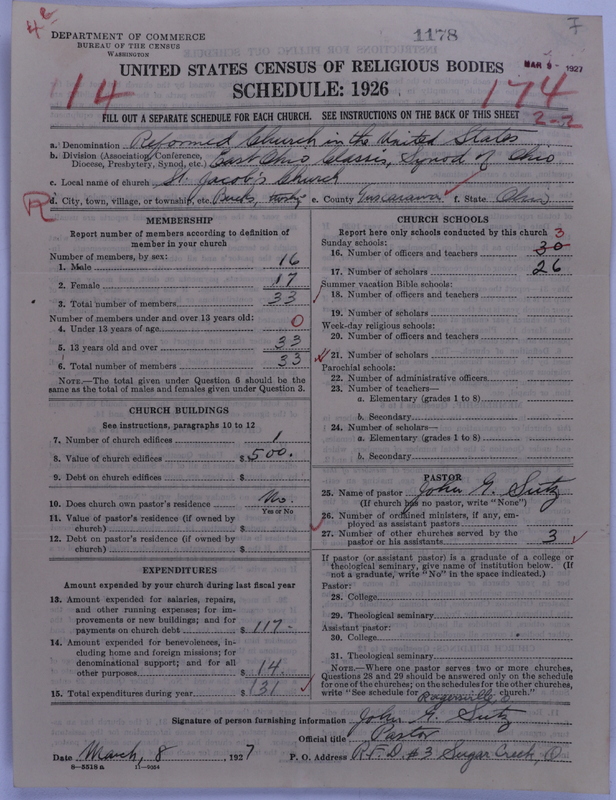 4e
DEPARTMENT OF COMMERCE
BUREAU OF THE CENSUS
WASHINGTON
1178
7
UNITED STATES CENSUS OF RELIGIOUS BODIES
MAR 9 - 1927
114
SCHEDULE: 1926
174
FILL OUT A SEPARATE SCHEDULE FOR EACH CHURCH. SEE INSTRUCTIONS ON THE BACK OF THIS SHEET
2-2
a. Denomination Reformed Church in the United States
b. Division (Association, Conference, Diocese, Presbytery, Synod, etc.) East Ohio Classis, Synod of Ohio
c. Local name of church St. Jacob's Church
R
d. City, town, village, or township, etc. Bucks, township e. County Tuscarawas f. State Ohio
MEMBERSHIP
Report number of members according to definition of
member in your church
Number of members, by sex:
1. Male 16
2. Female 17
3. Total number of members 33
Number of members under and over 13 years old:
4. Under 13 years of age 0
5. 13 years old and over 33
6. Total number of members 33
NOTE.—The total given under Question 6 should be the
same as the total of males and females given under Question 3.
CHURCH BUILDINGS
See instructions, paragraphs 10 to 12
7. Number of church edifices 1
8. Value of church edifices $ 500.
9. Debt on church edifices $
10. Does church own pastor's residence No.
Yes or No
11. Value of pastor's residence (if owned by
church) $
12. Debt on pastor's residence (if owned by
church) $
EXPENDITURES
Amount expended by your church during last fiscal year
13. Amount expended for salaries, repairs,
and other running expenses; for im-
provements or new buildings; and for
payments on church debt $ 117-
14. Amount expended for benevolences, in-
cluding home and foreign missions; for
denominational support; and for all
other purposes $ 14.
15. Total expenditures during year $ 131
CHURCH SCHOOLS
Report here only schools conducted by this church
Sunday schools: 3
16. Number of officers and teachers 30
17. Number of scholars 26
Summer vacation Bible schools:
18. Number of officers and teachers
19. Number of scholars
Week-day religious schools:
20. Number of officers and teachers
21. Number of scholars
Parochial schools:
22. Number of administrative officers
23. Number of teachers—
a. Elementary (grades 1 to 8)
b. Secondary
24. Number of scholars—
a. Elementary (grades 1 to 8)
b. Secondary
PASTOR
25. Name of pastor John G. Sutz
(If church has no pastor, write "None")
26. Number of ordained ministers, if any, em-
ployed as assistant pastors
27. Number of other churches served by the
pastor or his assistants 3
If pastor (or assistant pastor) is a graduate of a college or
theological seminary, give name of institution below. (If
not a graduate, write "No" in the space indicated.)
Pastor:
28. College
29. Theological seminary
Assistant pastor:
30. College
31. Theological seminary
NOTE.—Where one pastor serves two or more churches,
Questions 28 and 29 should be answered only on the schedule
for one of the churches; on the schedules for the other churches,
write "See schedule for Rogersville, O church."
Signature of person furnishing information John G. Sutz
Official title Pastor
Date March, 8 1927 P. O. Address R.F.D. #3 Sugar Creek, O
8—5518 a 11—9054